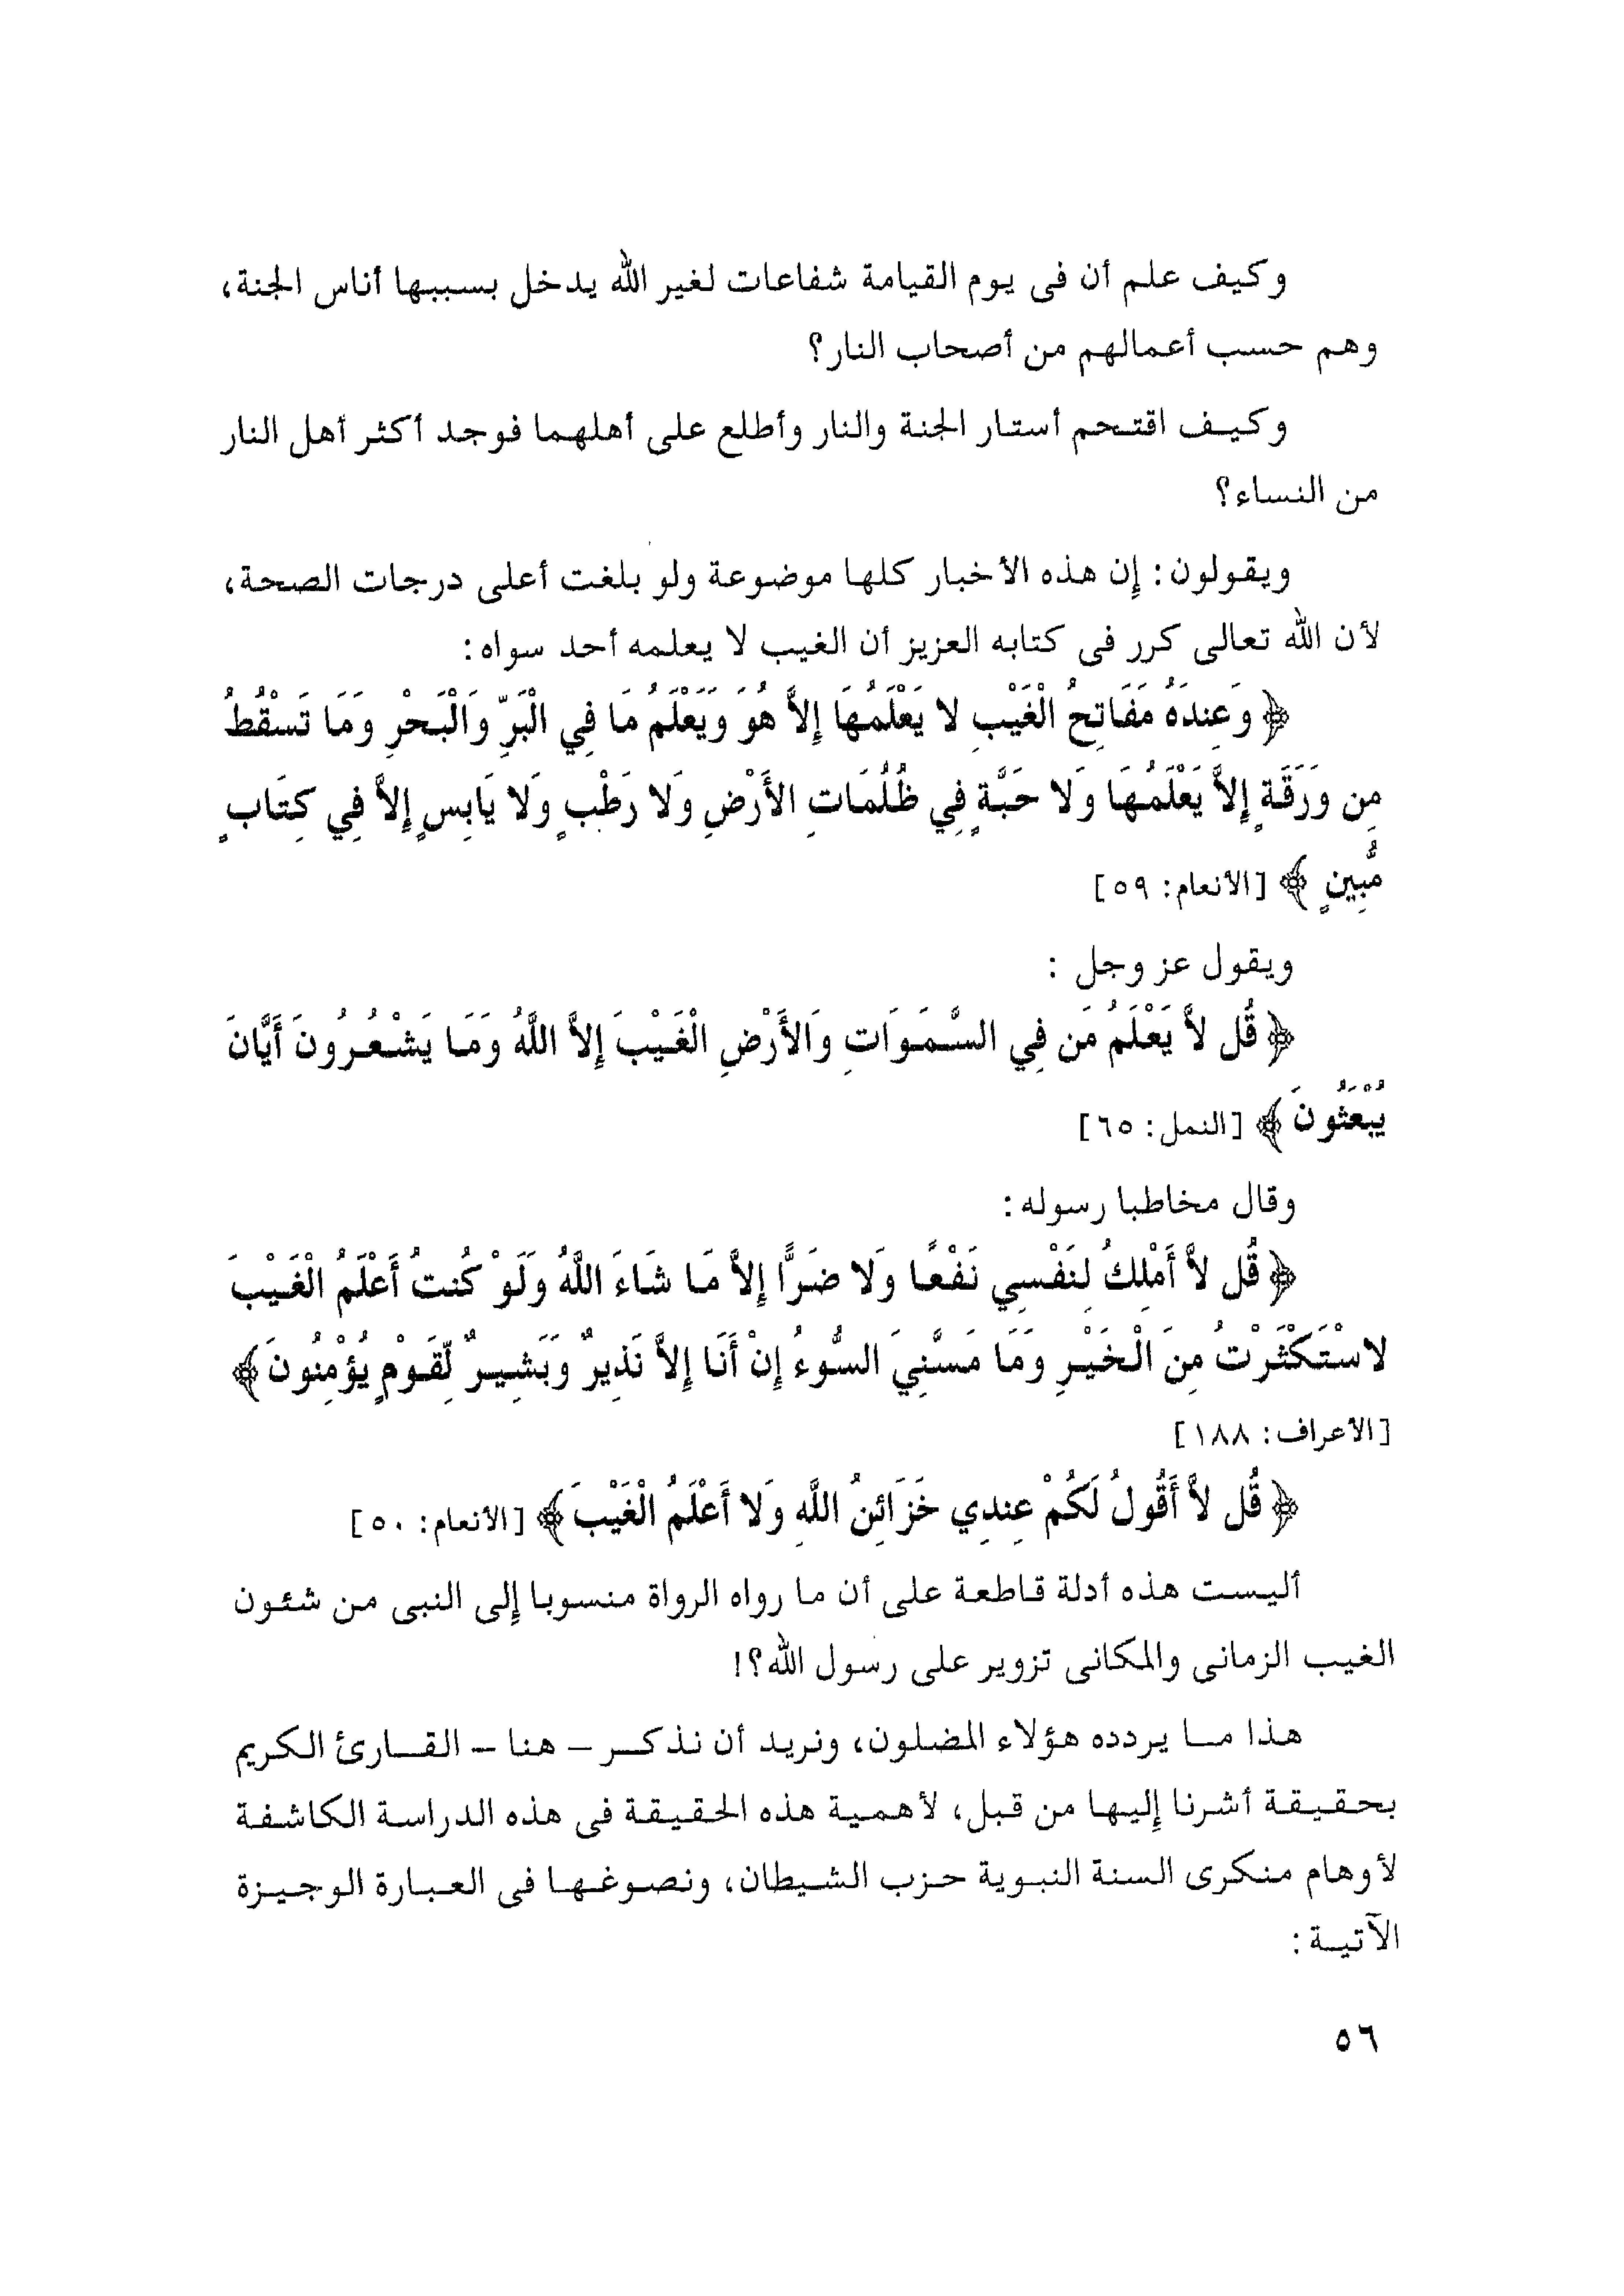 وكيف علم أن فى يوم القيامة شفاعات لغير الله يدخل بسببها أناس الجنة،
وهم حسب أعمالهم من أصحاب النار؟
وكيف اقتحم أستار الجنة والنار وأطلع على أهلهما فوجد أكثر أهل النار
من النساء؟
ويقولون: إن هذه الأخبار كلها موضوعة ولو بلغت أعلى درجات الصحة،
لأن الله تعالى كرر فى كتابه العزيز أن الغيب لا يعلمه أحد سواه:
﴿ وَعِندَهُ مَفَاتِحُ الْغَيْبِ لا يَعْلَمُهَا إِلاَّ هُوَ وَيَعْلَمُ مَا فِي الْبَرِّ وَالْبَحْرِ وَمَا تَسْقُطُ
مِن وَرَقَةٍ إِلاَّ يَعْلَمُهَا وَلا حَبَّةٍ فِي ظُلُمَاتِ الأَرْضِ وَلا رَطْبٍ وَلا يَابِسٍ إِلاَّ فِي كِتَابٍ
مُّبِينٍ ﴾ [الأنعام: ٥٩]
ويقول عز وجل :
﴿ قُل لاَّ يَعْلَمُ مَن فِي السَّمَوَاتِ وَالأَرْضِ الْغَيْبَ إِلاَّ اللَّهُ وَمَا يَشْعُرُونَ أَيَّانَ
يُبْعَثُونَ ﴾ [النمل: ٦٥]
وقال مخاطبا رسوله:
﴿ قُل لاَّ أَمْلِكُ لِنَفْسِي نَفْعًا وَلا ضَرًّا إِلاَّ مَا شَاءَ اللَّهُ وَلَوْ كُنتُ أَعْلَمُ الْغَيْبَ
لاسْتَكْثَرْتُ مِنَ الْخَيْرِ وَمَا مَسَّنِيَ السُّوءُ إِنْ أَنَا إِلاَّ نَذِيرٌ وَبَشِيرٌ لِّقَوْمٍ يُؤْمِنُونَ ﴾
[الأعراف: ١٨٨]
﴿ قُل لاَّ أَقُولُ لَكُمْ عِندِي خَزَائِنُ اللَّهِ وَلا أَعْلَمُ الْغَيْبَ ﴾ [الأنعام: ٥٠]
أليست هذه أدلة قاطعة على أن ما رواه الرواة منسوبا إلى النبى من شئون
الغيب الزمانى والمكانى تزوير على رسول الله؟!
هذا ما يردده هؤلاء المضلون، ونريد أن نذكر – هنا – القارئ الكريم
بحقيقة أشرنا إليها من قبل، لأهمية هذه الحقيقة فى هذه الدراسة الكاشفة
لأوهام منكرى السنة النبوية حزب الشيطان، ونصوغها فى العبارة الوجيزة
الآتية:
٥٦